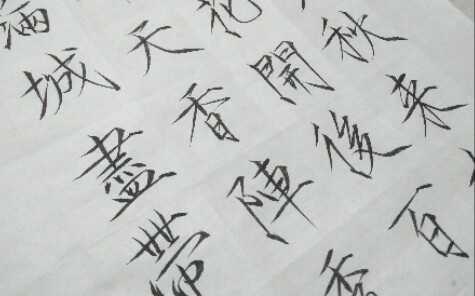 秋来
花開後百
天香陣
滿城盡帶